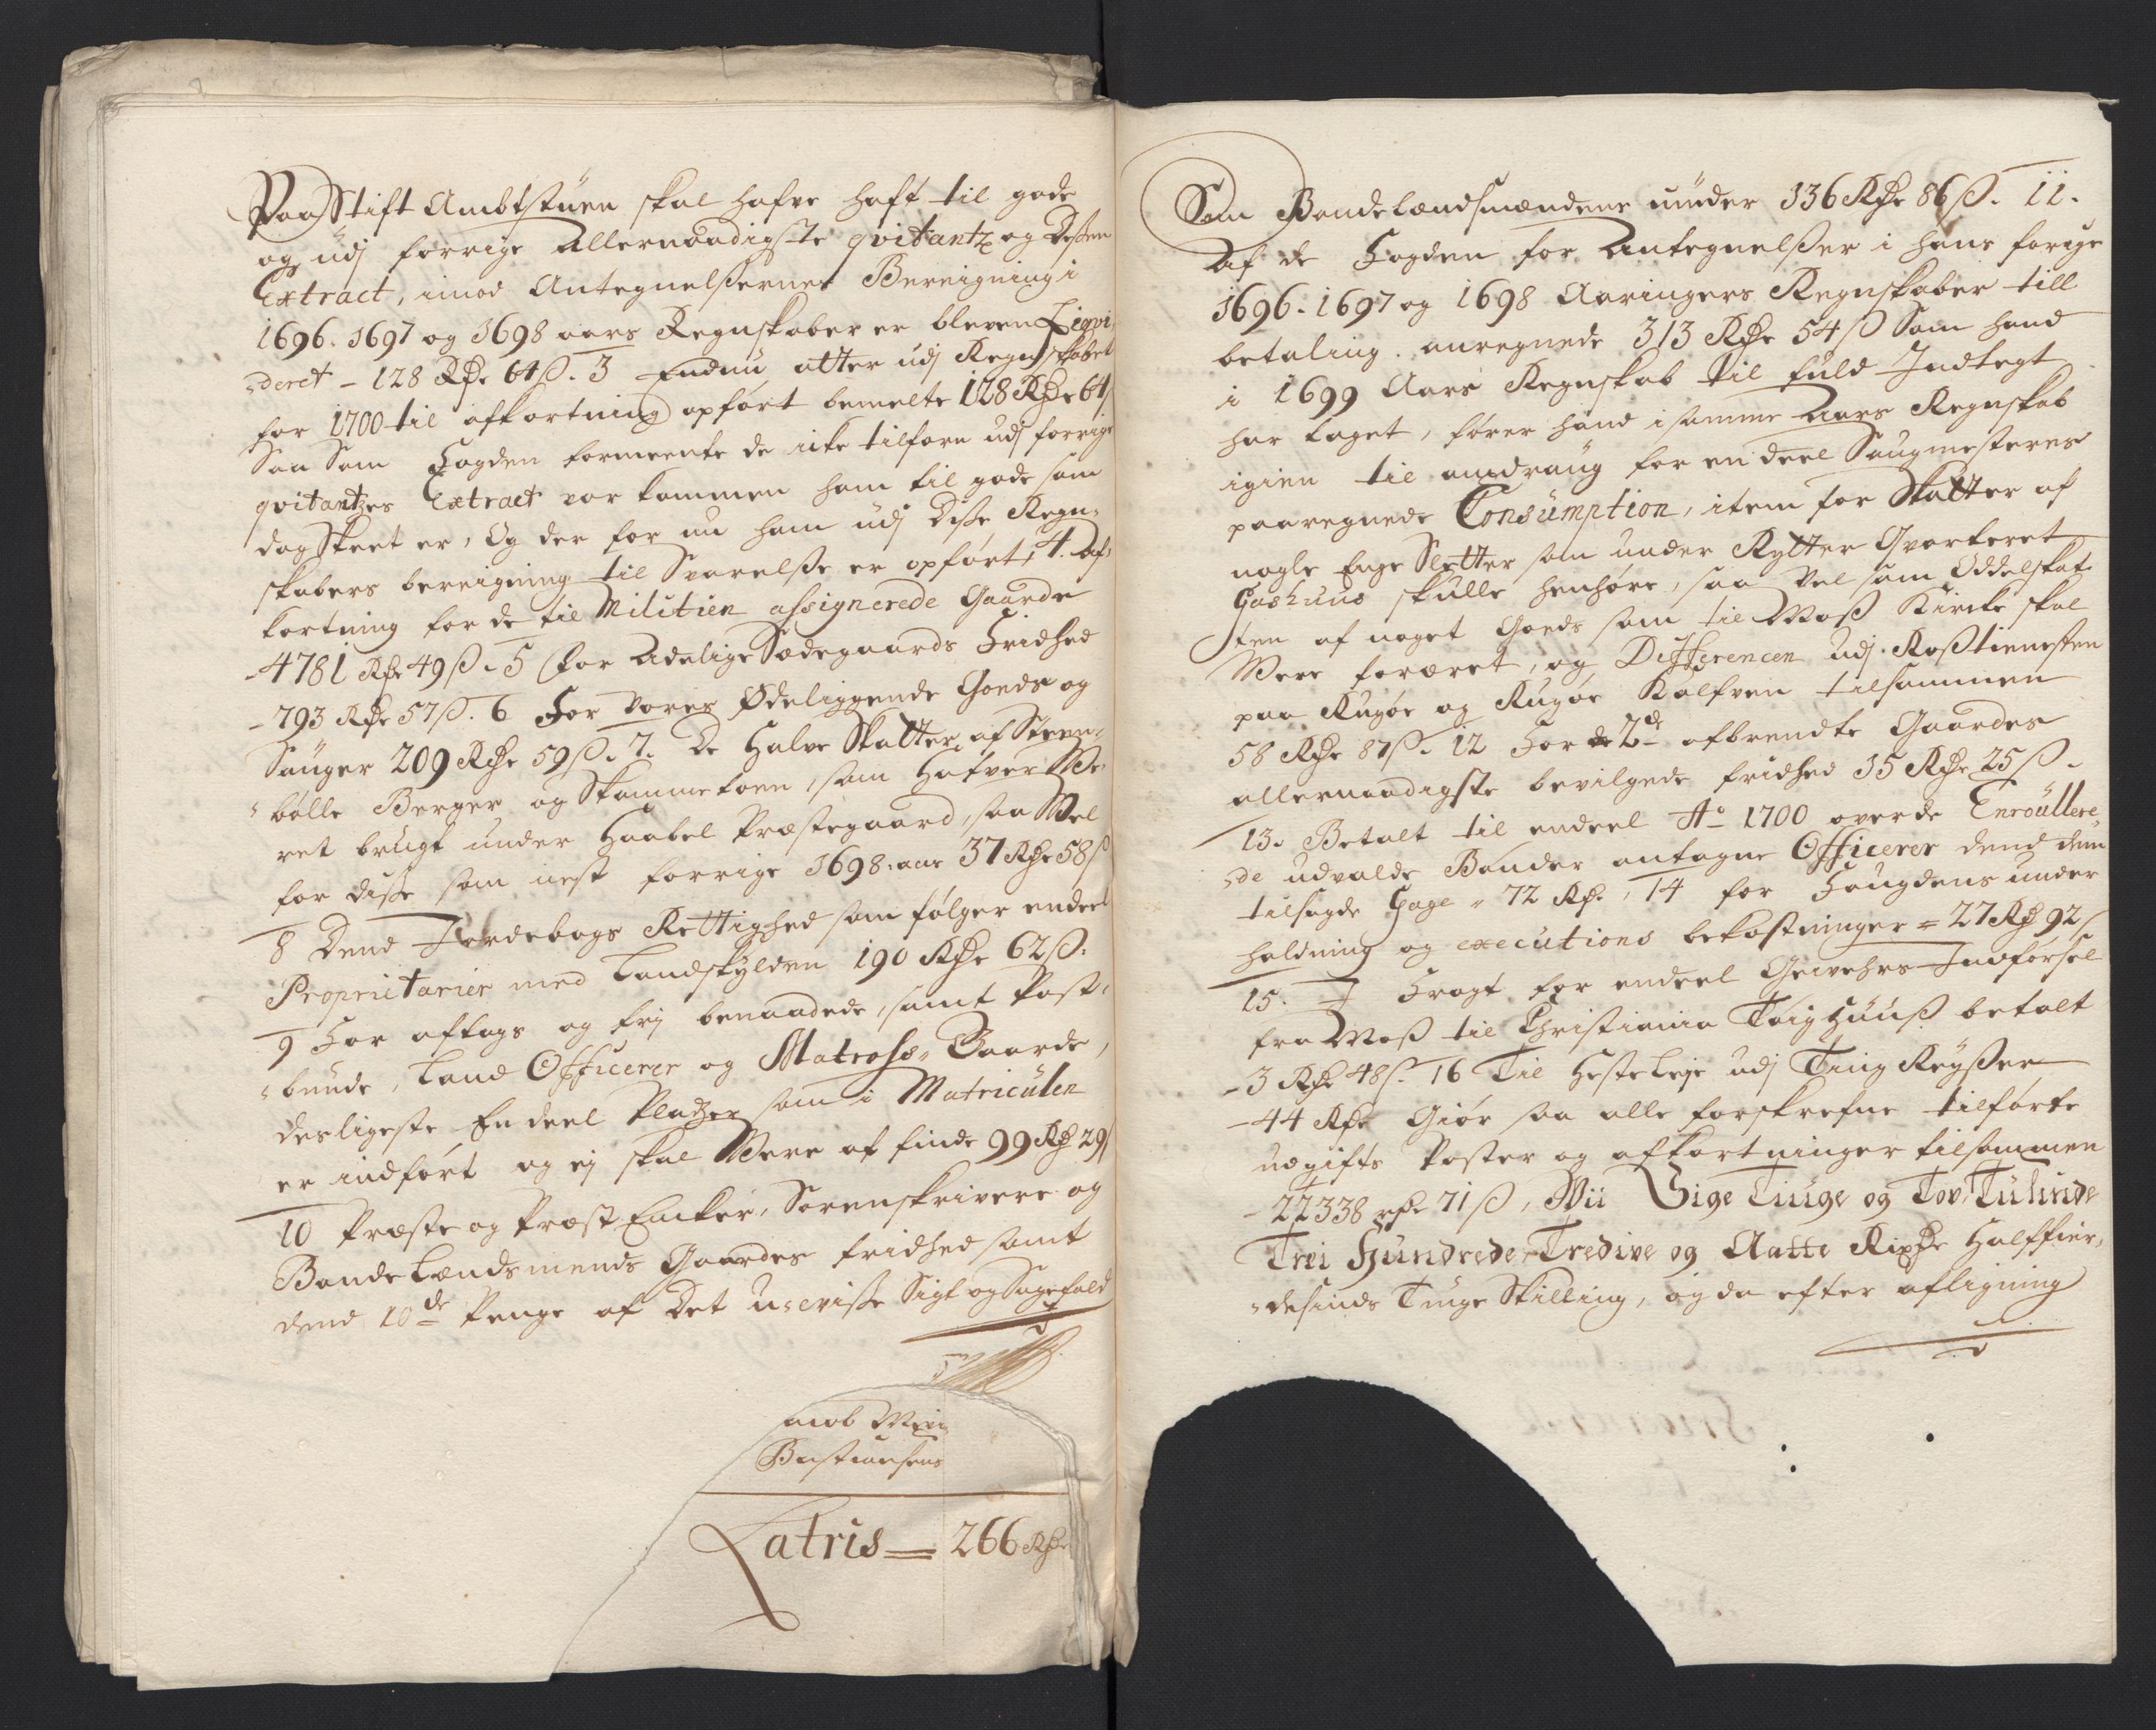 Paa Stift Ambtstuen skal hafve haft til gode
og udj forrige allernaadigste qvitantz og Dessen
Extract, imod Antegnelsernes Bereigning i
1696. 1697 og 1698 aars Regnskaber er bleven Liqvi-
deret - 128 Rdr 64 ß. 3 Endnu atter udj Regnskabet
for 1700 til afkortning opført bemelte 128 Rdr 64 ß
Saa Som Fogden formeente de icke tilforn udj forrige
qvitantzes Extract var kommen ham til gode som
dog skeet er, Og der for nu ham udj disse Regn-
skabers bereigning til Svarelse er opført, 4. Af-
kortning for de til Militien assignerede Gaarde
- 4781 Rdr 49 ß. 5 for Adelige Sædegaards Fridhed
- 793 Rdr 57 ß. 6 For vores Ødeliggende Goeds og
Sauger 209 Rdr 59 ß. 7. De Halve Skatter af Steen-
bølle Berger og Skammeloen, som Hafver We-
ret brugt under Haabel Præstegaard, saa Wel
for disse som nest forrige 1698: aar 37 Rdr 58 ß
8 Dend Jordebogs Rettighed som følger endeel
Proprietarier med Landskylden 190 Rdr 62 ß.
9 For aftags og frj benaadede, samt Post-
bunde, Land Officerer og Matross-Gaarde,
desligeste En deel Pladzer som i Matriculen
er indført og ej skal Were at finde 99 Rdr 29 ß
10 Præste og Præst Encker, Sorenskrivere og
Bonde Lendsmends Gaardes fridhed samt
dend 10de Penge af Det uvisse Sigt og Sagefald
Bastiansens
Latris = 266 Rdr
Som Bondelændsmændene niuder 136 Rdr 86 ß. 11.
Af de Fogden for Antegnelser i hans forige
1696. 1697 og 1698 Aaringers Regnskaber till
betaling anregnede 313 Rdr 54 ß Som hand
i 1699 Aars Regnskab til fuld Indtegt
har taget, fører hand i samme Aars Regnskab
igien til anddraug for en deel Saugmesteres
paaregnede Consumption, item for Skatter af
nogle Enge Sletter som under Rytter Qvarteret
Gashuus skulle henhøre, saa vel som Oddelskat-
ten af noget Goeds som til Moss Kircke skal
Were foræret, og Differencen udj Rosstienesten
paa Rugøe og Rugøe Kalfven tilsammen
58 Rdr 87 ß. 12 For de 2de afbrendte Gaardes
allernaadigste bevilgede fridhed 15 Rdr 25 ß.
13. Betalt til endeel Ao 1700 over de Enroullere-
de udvalde Bønder antagne Officerer dend dem
tilsagde Gage - 72 Rdr. 14 for Fougdens under
holdning og executions bekostninger = 27 Rdr 92 ß
15. I Fragt for endeel Geivehrs Indførsel
fra Moss til Christiania Tøighuuss betalt
- 3 Rdr 48 ß. 16 Til Hesteleje udj Ting Reyser
- 44 Rdr Giør saa alle forskrefne tilførte
udgifts Poster og afkortninger tilsammen
- 22338 rdr 71 ß, Wii Sige Tiuge og Tov Tusinde
Trei Hundrede Tredive og Aatte Rixdr Halffier-
desinds Tiuge Skilling, og da efter afligning